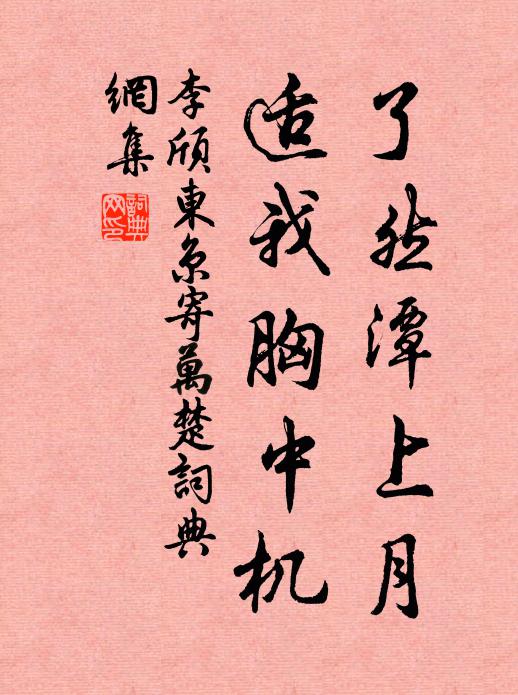 了然潭上月
适我胸中机
李颀東京寄萬楚詞典
網集
詞典
网印